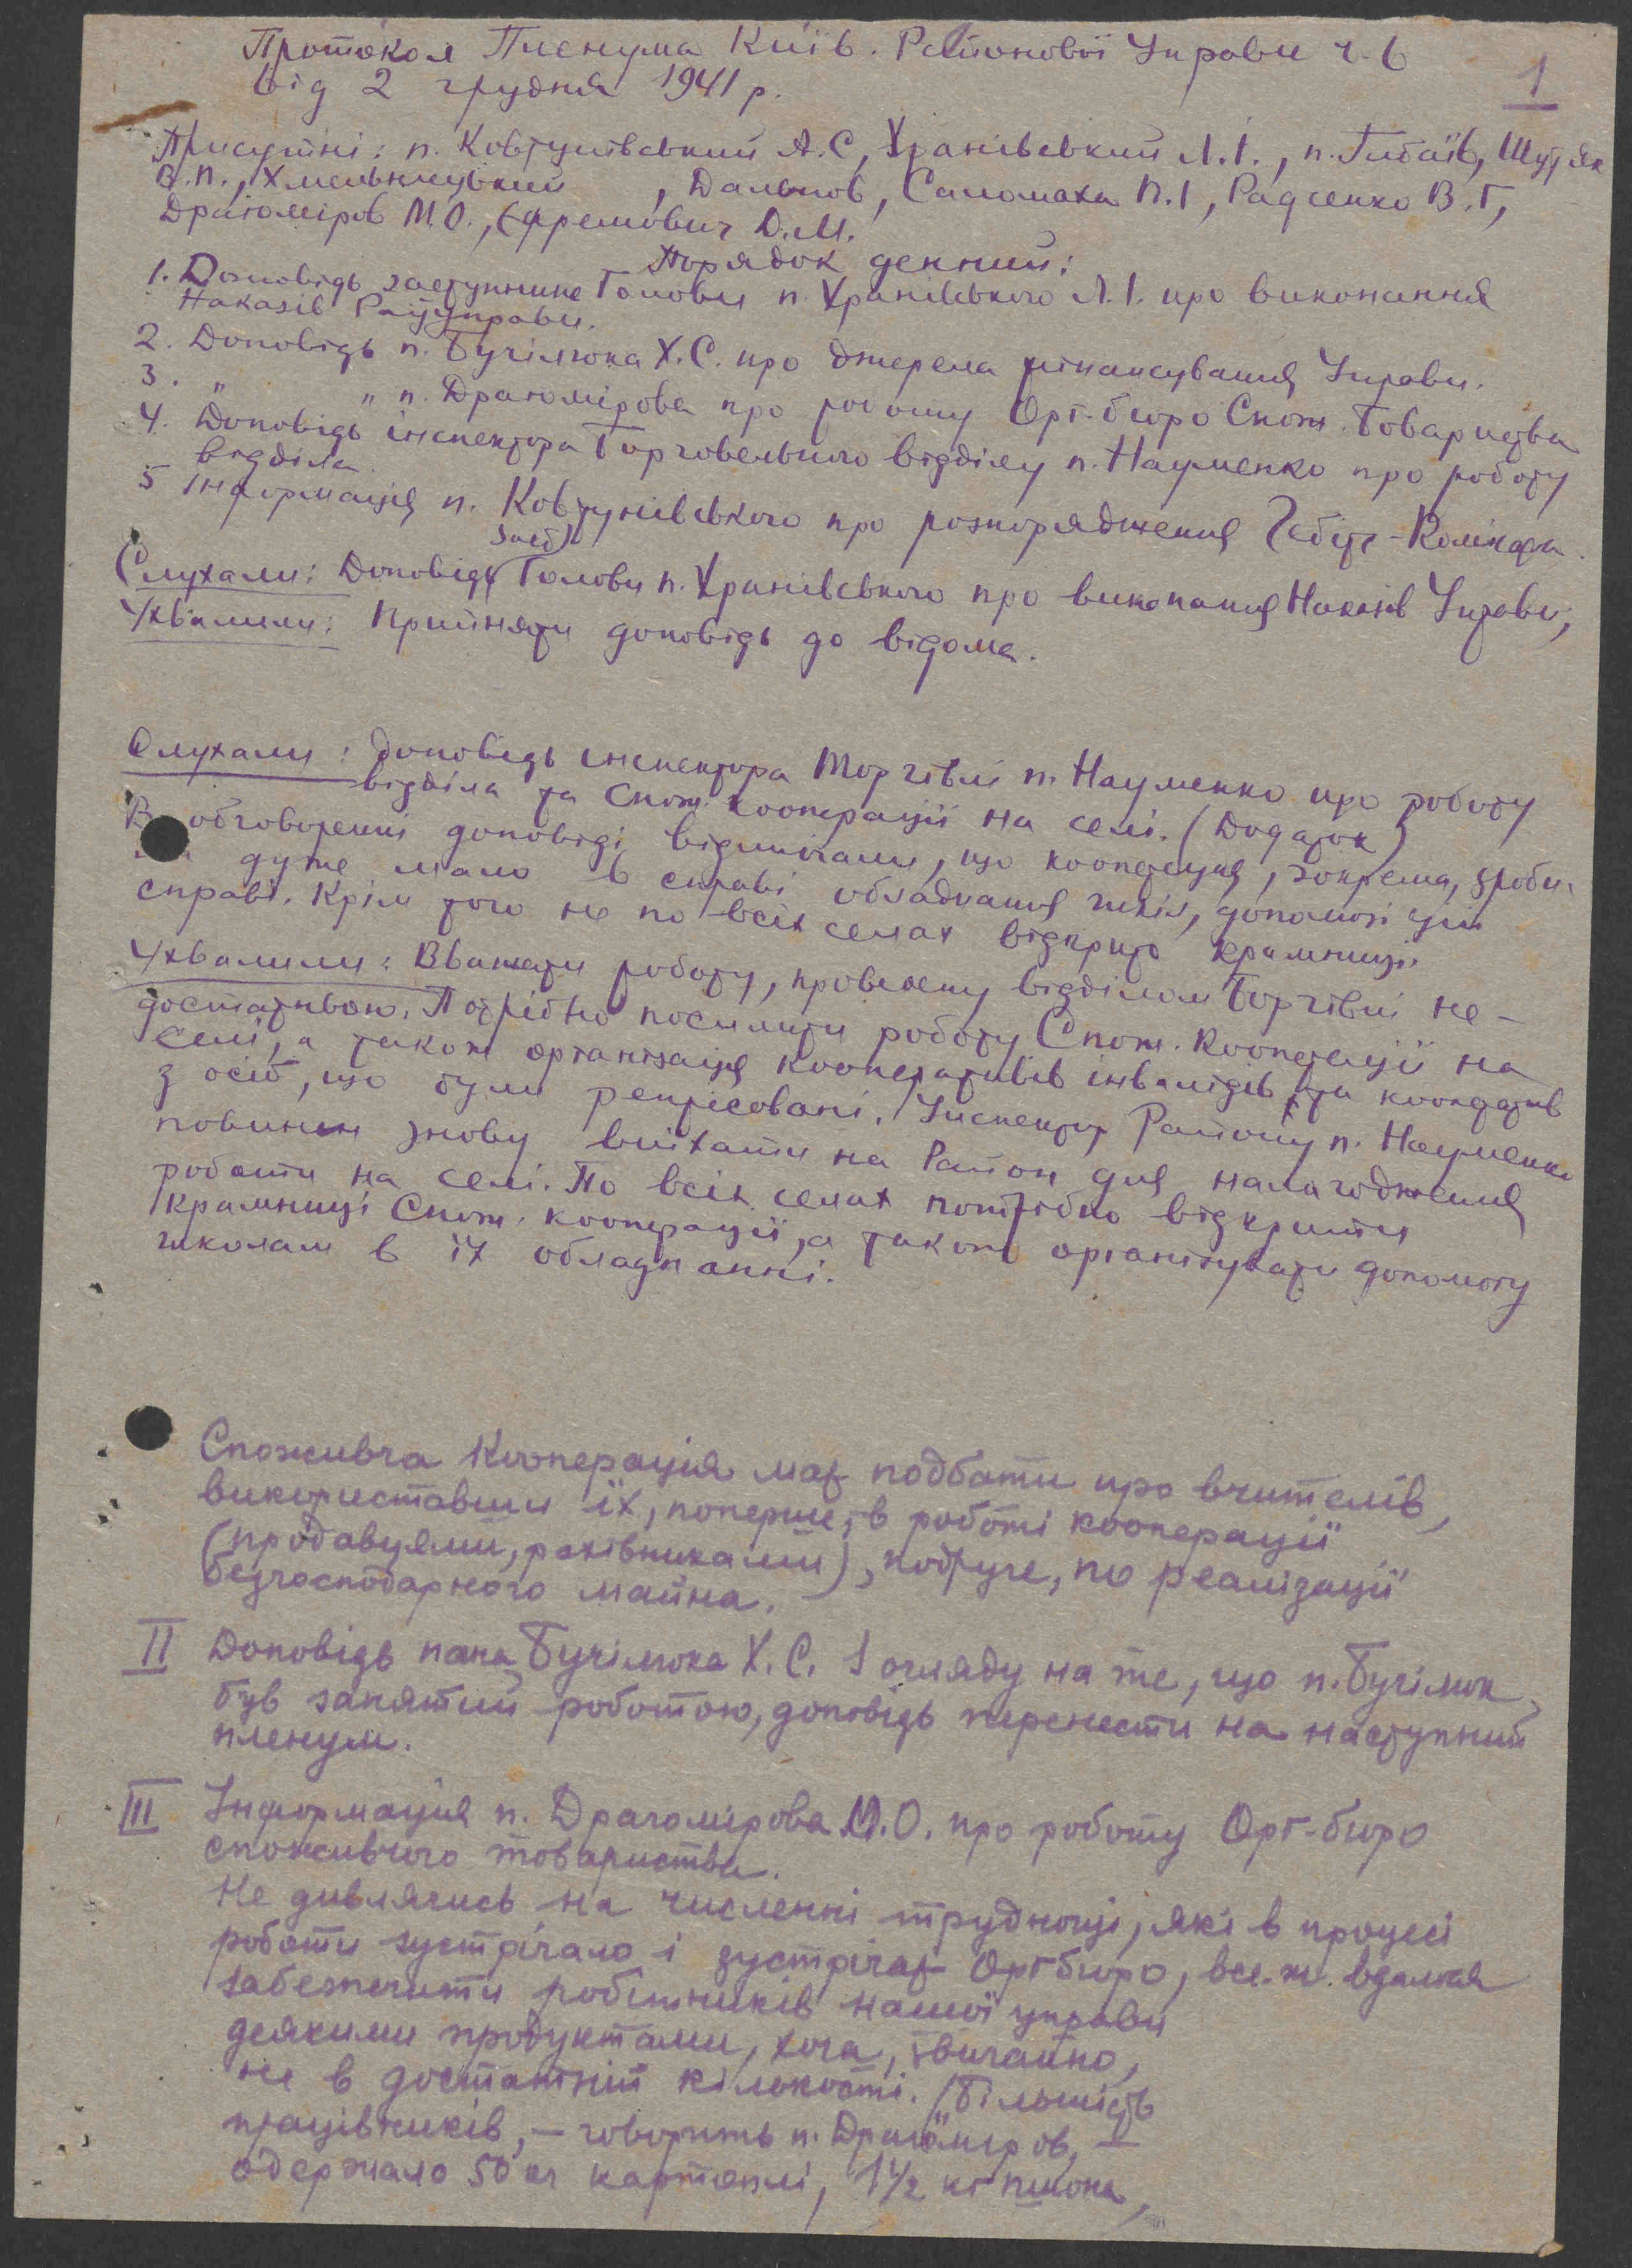 Протокол Пленума Київ. Районової Управи ч. 6
1
від 2 грудня 1941 р.
Присутні: п. Ковтунівський А.С, Хранівський Л.І., п. Гибаїв, Шутяк
В.П., Хмельницький , Дальнов, Саломаха П.І, Радченко В.Г,
Драгоміров М.О., Єфремович Д.М.
Порядок денний:
1. Доповідь заступника Голови п. Хранівського Л.І. про виконання
Наказів Райуправи.
2. Доповідь п. Бучімюка Х.С. про джерела фінансування Управи.
3. " " п. Драгомірова про роботу Орг. бюро Спож. Товариства
4. Доповідь інспектора Торговельного відділу п. Науменко про роботу
відділа.
5 Інформація п. Ковтунівського про розпорядження Гебітс-Комісара.
заст.
Слухали: Доповідь Голови п. Хранівського про виконання Наказів Управи;
Ухвалили: Прийняти доповідь до відома.
Слухали: Доповідь інспектора Торгівлі п. Науменко про роботу
відділа та Спож. кооперації на селі. (Додаток)
В обговоренні доповіді відмічали, що кооперація, зокрема, зроби-
ла дуже мало в справі обладнання шкіл, допомозі цій
справі. Крім того не по всіх селах відкрито крамниці.
Ухвалили: Вважати роботу, проведену відділом Торгівлі не-
достатньою. Потрібно посилити роботу Спож. Кооперації на
селі, а також організація кооперативів інвалідів та кооператив
з осіб, що були репресовані. Інспектор Району п. Науменко
повинен знову виїхати на Район для налагодження
роботи на селі. По всіх селах потрібно відкрити
крамниці Спож. кооперації, а також організувати допомогу
школам в їх обладнанні.
Споживча Кооперація має подбати про вчителів,
використавши їх, поперше, в роботі кооперації
(продавцями, рахівниками), подруге, по реалізації
безгосподарного майна.
II Доповідь пана Бучімюка Х.С. З огляду на те, що п. Бучімюк
був занятий роботою, доповідь перенести на наступний
пленум.
III Інформація п. Драгомірова М.О. про роботу Орг-бюро
споживчого товариства.
Не дивлячись на численні труднощі, які в процесі
роботи зустрічало і зустрічає Оргбюро, все ж. вдалося
забезпечити робітників нашої управи
деякими продуктами, хоча, звичайно,
не в достатній кількості. Більшість
працівників, — говорить п. Драгоміров, —
одержало 50 кг картоплі, 1 1/2 кг пшона,